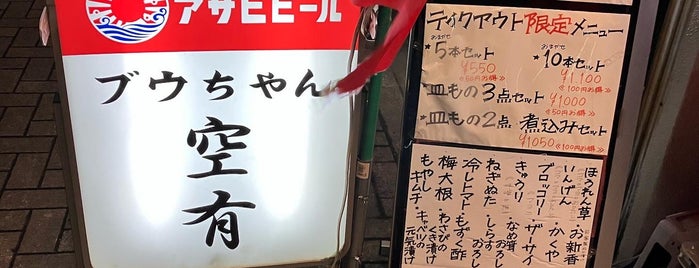 アサヒビール
ブウちゃん
空有
テイクアウト限定メニュー
おまかせ
★5本セット
¥550
≪50円お得≫
おまかせ
★10本セット
¥1,100
≪100円お得≫
★皿もの3点セット
¥1000
★皿もの2点 煮込みセット
¥1050 ≪100円お得≫
ほうれん草
いんげん
ブロッコリー
きゅうり
ねぎぬた
冷しトマト
梅大根
もやしキムチ
お新香
かくや
ザーサイ
なめ茸おろし
しらすおろし
もずく酢
わさびのくき漬け
キャベツの元気漬け